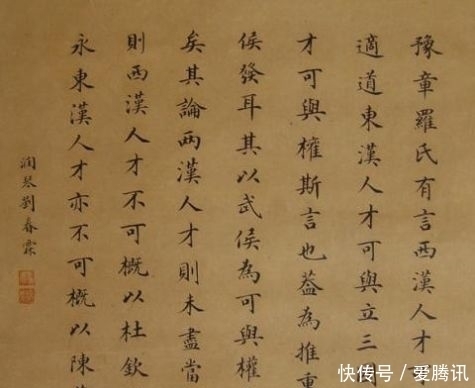 豫章羅氏有言西漢人才可
適道東漢人才可與立三國
才可與權斯言也葢為推重
侯發耳其以武侯為可與權
矣其論兩漢人才則未盡當
則西漢人才不可概以杜欽
永東漢人才亦不可概以陳
潤琴劉春霖
快传号/爱腾讯